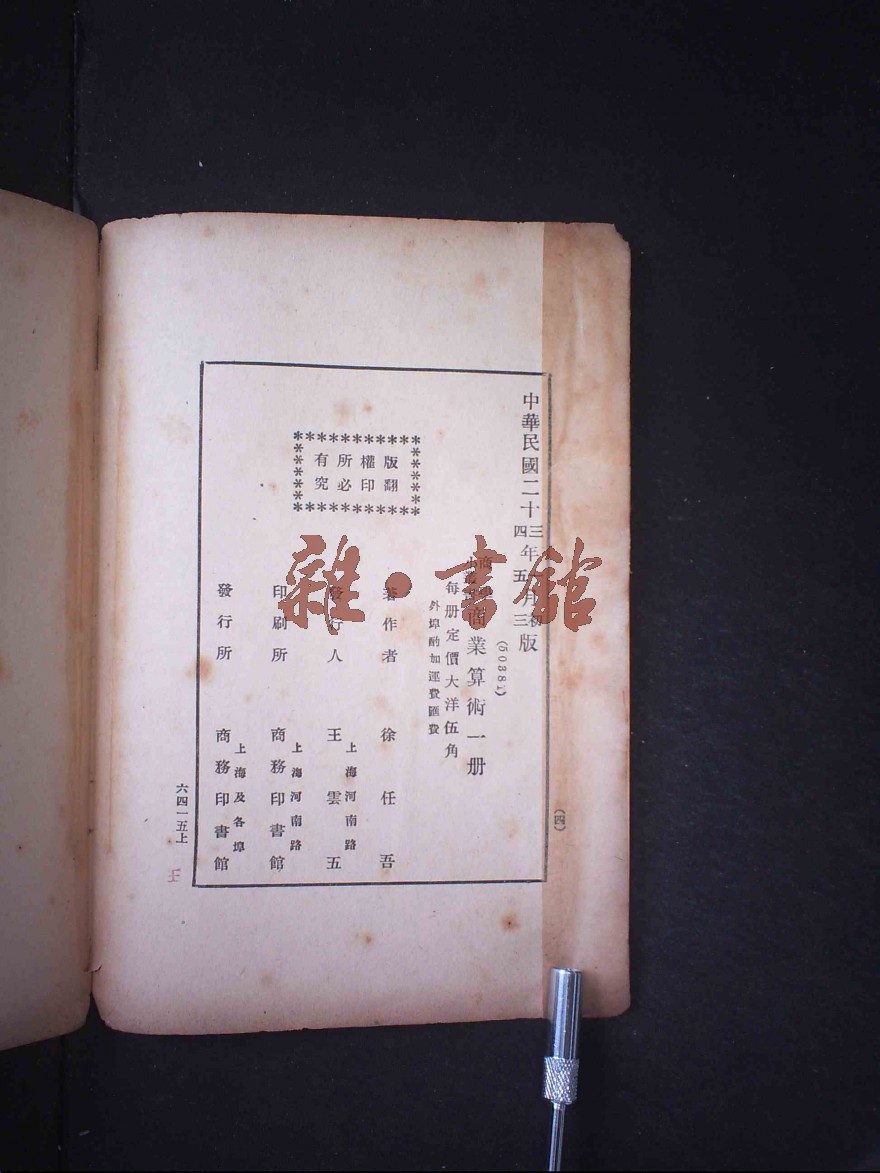 中華民國二十三年一月初版
四年五月三版
(50381)
商業算術一册
每册定價大洋伍角
外埠酌加運費匯費
版權所有
翻印必究
著作者 徐任吾
發行人 王雲五
上海河南路
印刷所 商務印書館
上海河南路
發行所 商務印書館
上海及各埠
(四)
六四一五上
王
雜·書館